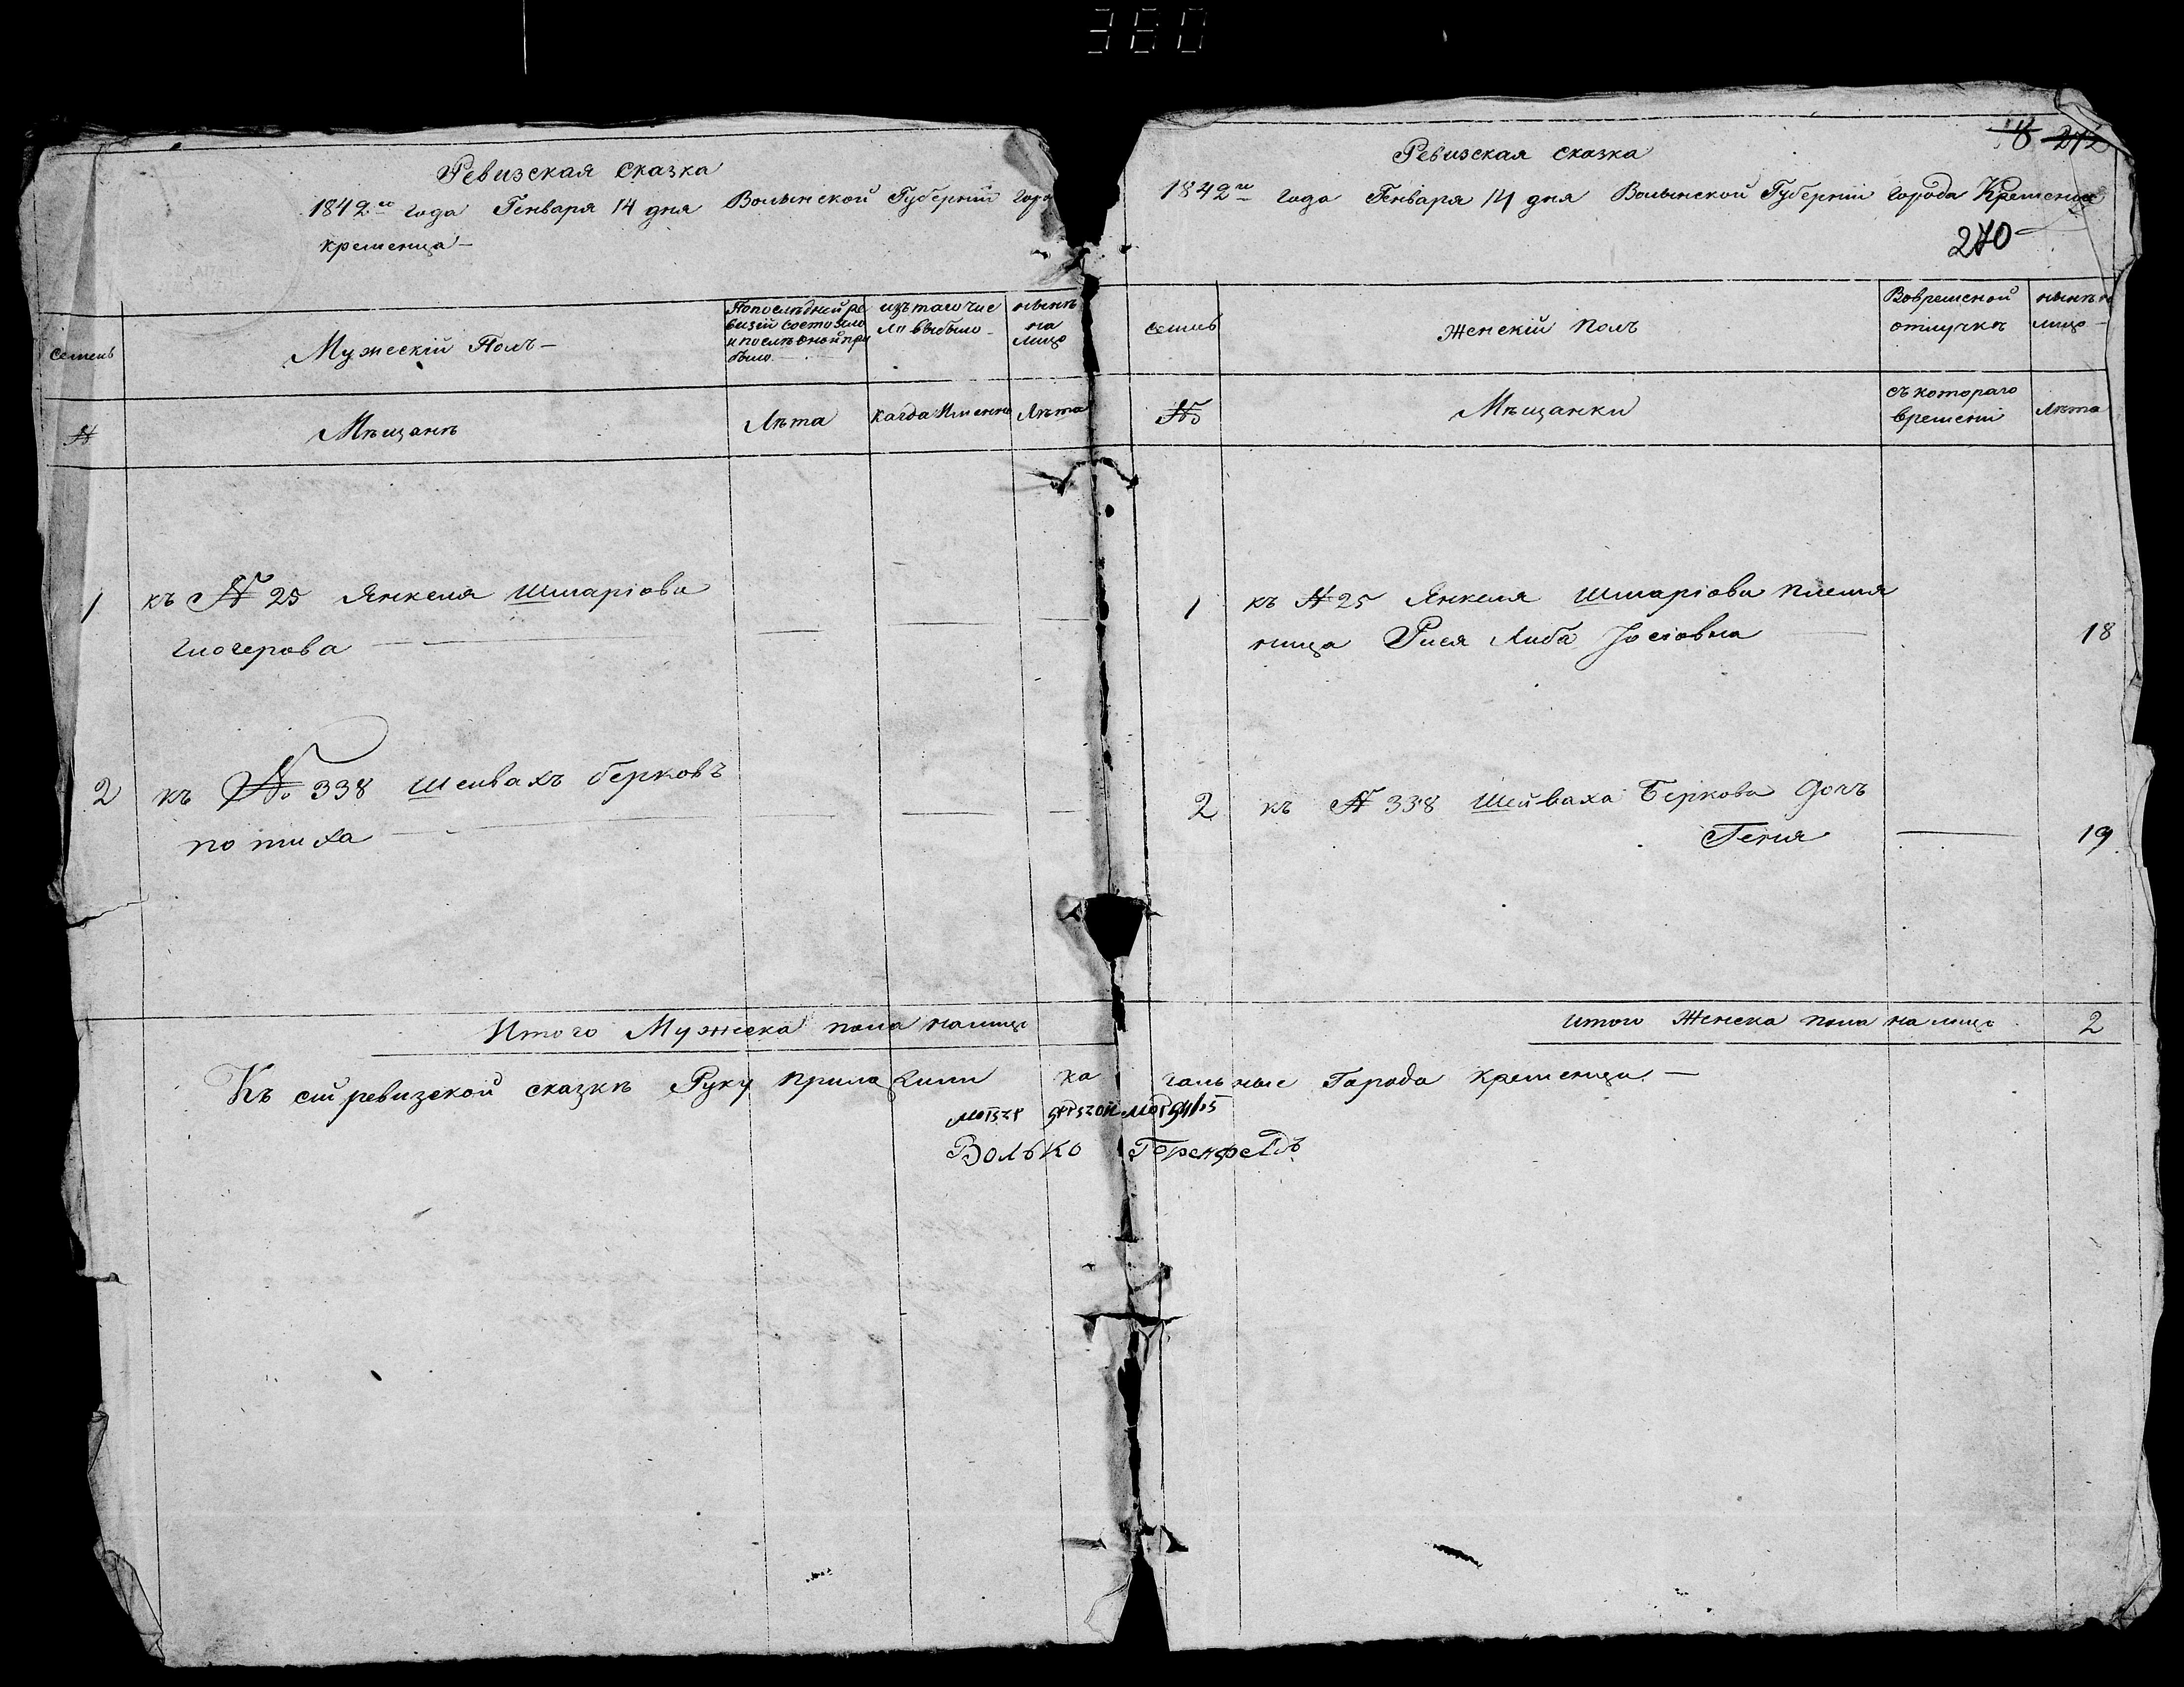 380
Ревизская сказка
1842го года Генваря 14 дня Волынской Губерніи горо
кременца —
семьь
Мужескій Полъ —
По последней ре
визіи состояло
и после оной при
было
изъ того чис
ла выбыло
нынѣ
на
лицо
№
Мѣщанъ
Лѣта
Когда Именно
Лѣта
1 къ № 25 Янкеля Шмаріова
Глогерова
2 къ № 338 Шейвахъ берковъ
потиха
Итого Мужеска пола налицо
Ревизская сказка
8 272
1842го года Генваря 14 дня Волынской Губерніи города Кременца
270
семьь
Женскій Полъ
Вовременой
отлучкѣ
нынѣ на
лицо —
№
Мѣщанки
съ котораго
времени
Лѣта
1 къ № 25 Янкеля Шмаріова племя
ница Рися Либа Іосіовна 18
2 къ № 338 Шейваха Беркова дочь
Геня 19
итого Женска пола налицо 2
Къ сей ревизской сказкѣ Руку приложили кагальные Города Кременца —
Волько Гренфелдъ